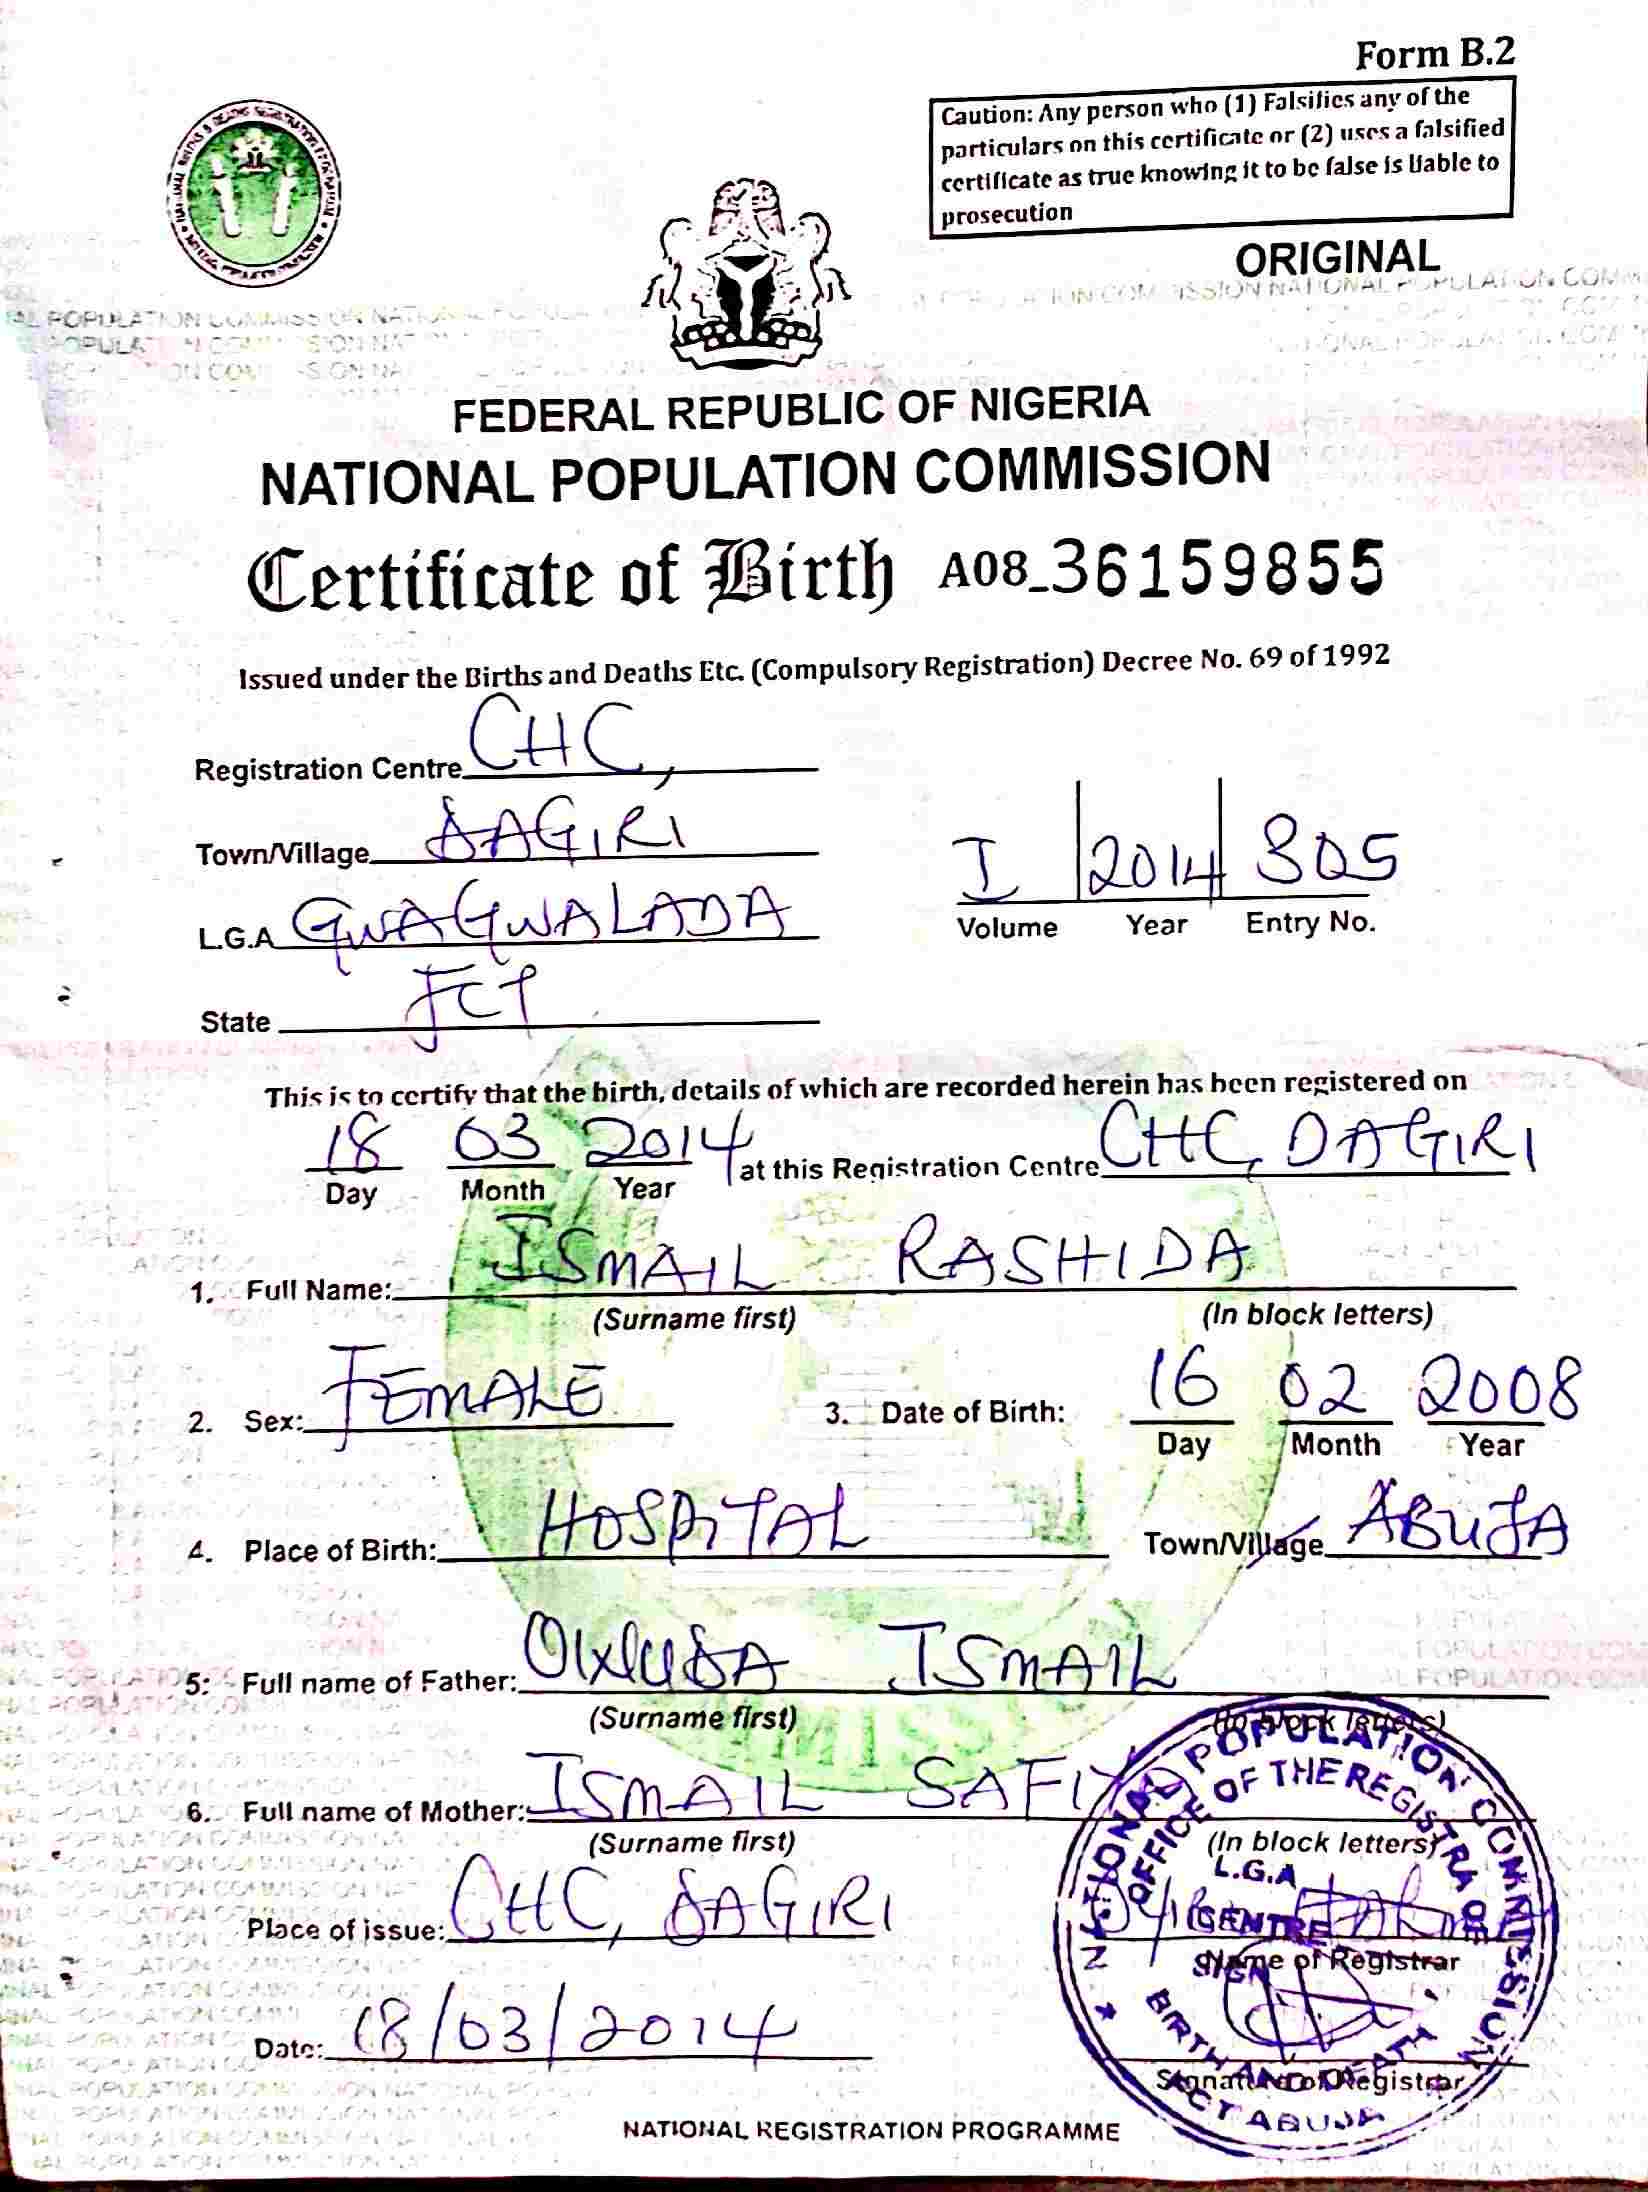 Form B.2
Caution: Any person who (1) Falsifies any of the
particulars on this certificate or (2) uses a falsified
certificate as true knowing it to be false is liable to
prosecution
ORIGINAL
FEDERAL REPUBLIC OF NIGERIA
NATIONAL POPULATION COMMISSION
Certificate of Birth A08-36159855
Issued under the Births and Deaths Etc. (Compulsory Registration) Decree No. 69 of 1992
Registration Centre CHC,
Town/Village DAGIRI
L.G.A GWAGWALADA
State FCT
I 2014 305
Volume Year Entry No.
This is to certify that the birth, details of which are recorded herein has been registered on
18 03 2014 at this Registration Centre CHC, DAGIRI
Day Month Year
1. Full Name: ISMAIL RASHIDA
(Surname first) (In block letters)
2. Sex: FEMALE 3. Date of Birth: 16 02 2008
Day Month Year
4. Place of Birth: HOSPITAL Town/Village ABUJA
5: Full name of Father: ISMAIL
(Surname first) (In block letters)
6. Full name of Mother: ISMAIL
(Surname first) (In block letters)
Place of issue: CHC, DAGIRI
Name of Registrar
Date: 18/03/2014
Signature of Registrar
NATIONAL POPULATION COMMISSION
OFFICE OF THE REGISTRAR OF
L.G.A
CENTRE
SIGN
BIRTH AND DEATH
ABUJA
NATIONAL REGISTRATION PROGRAMME